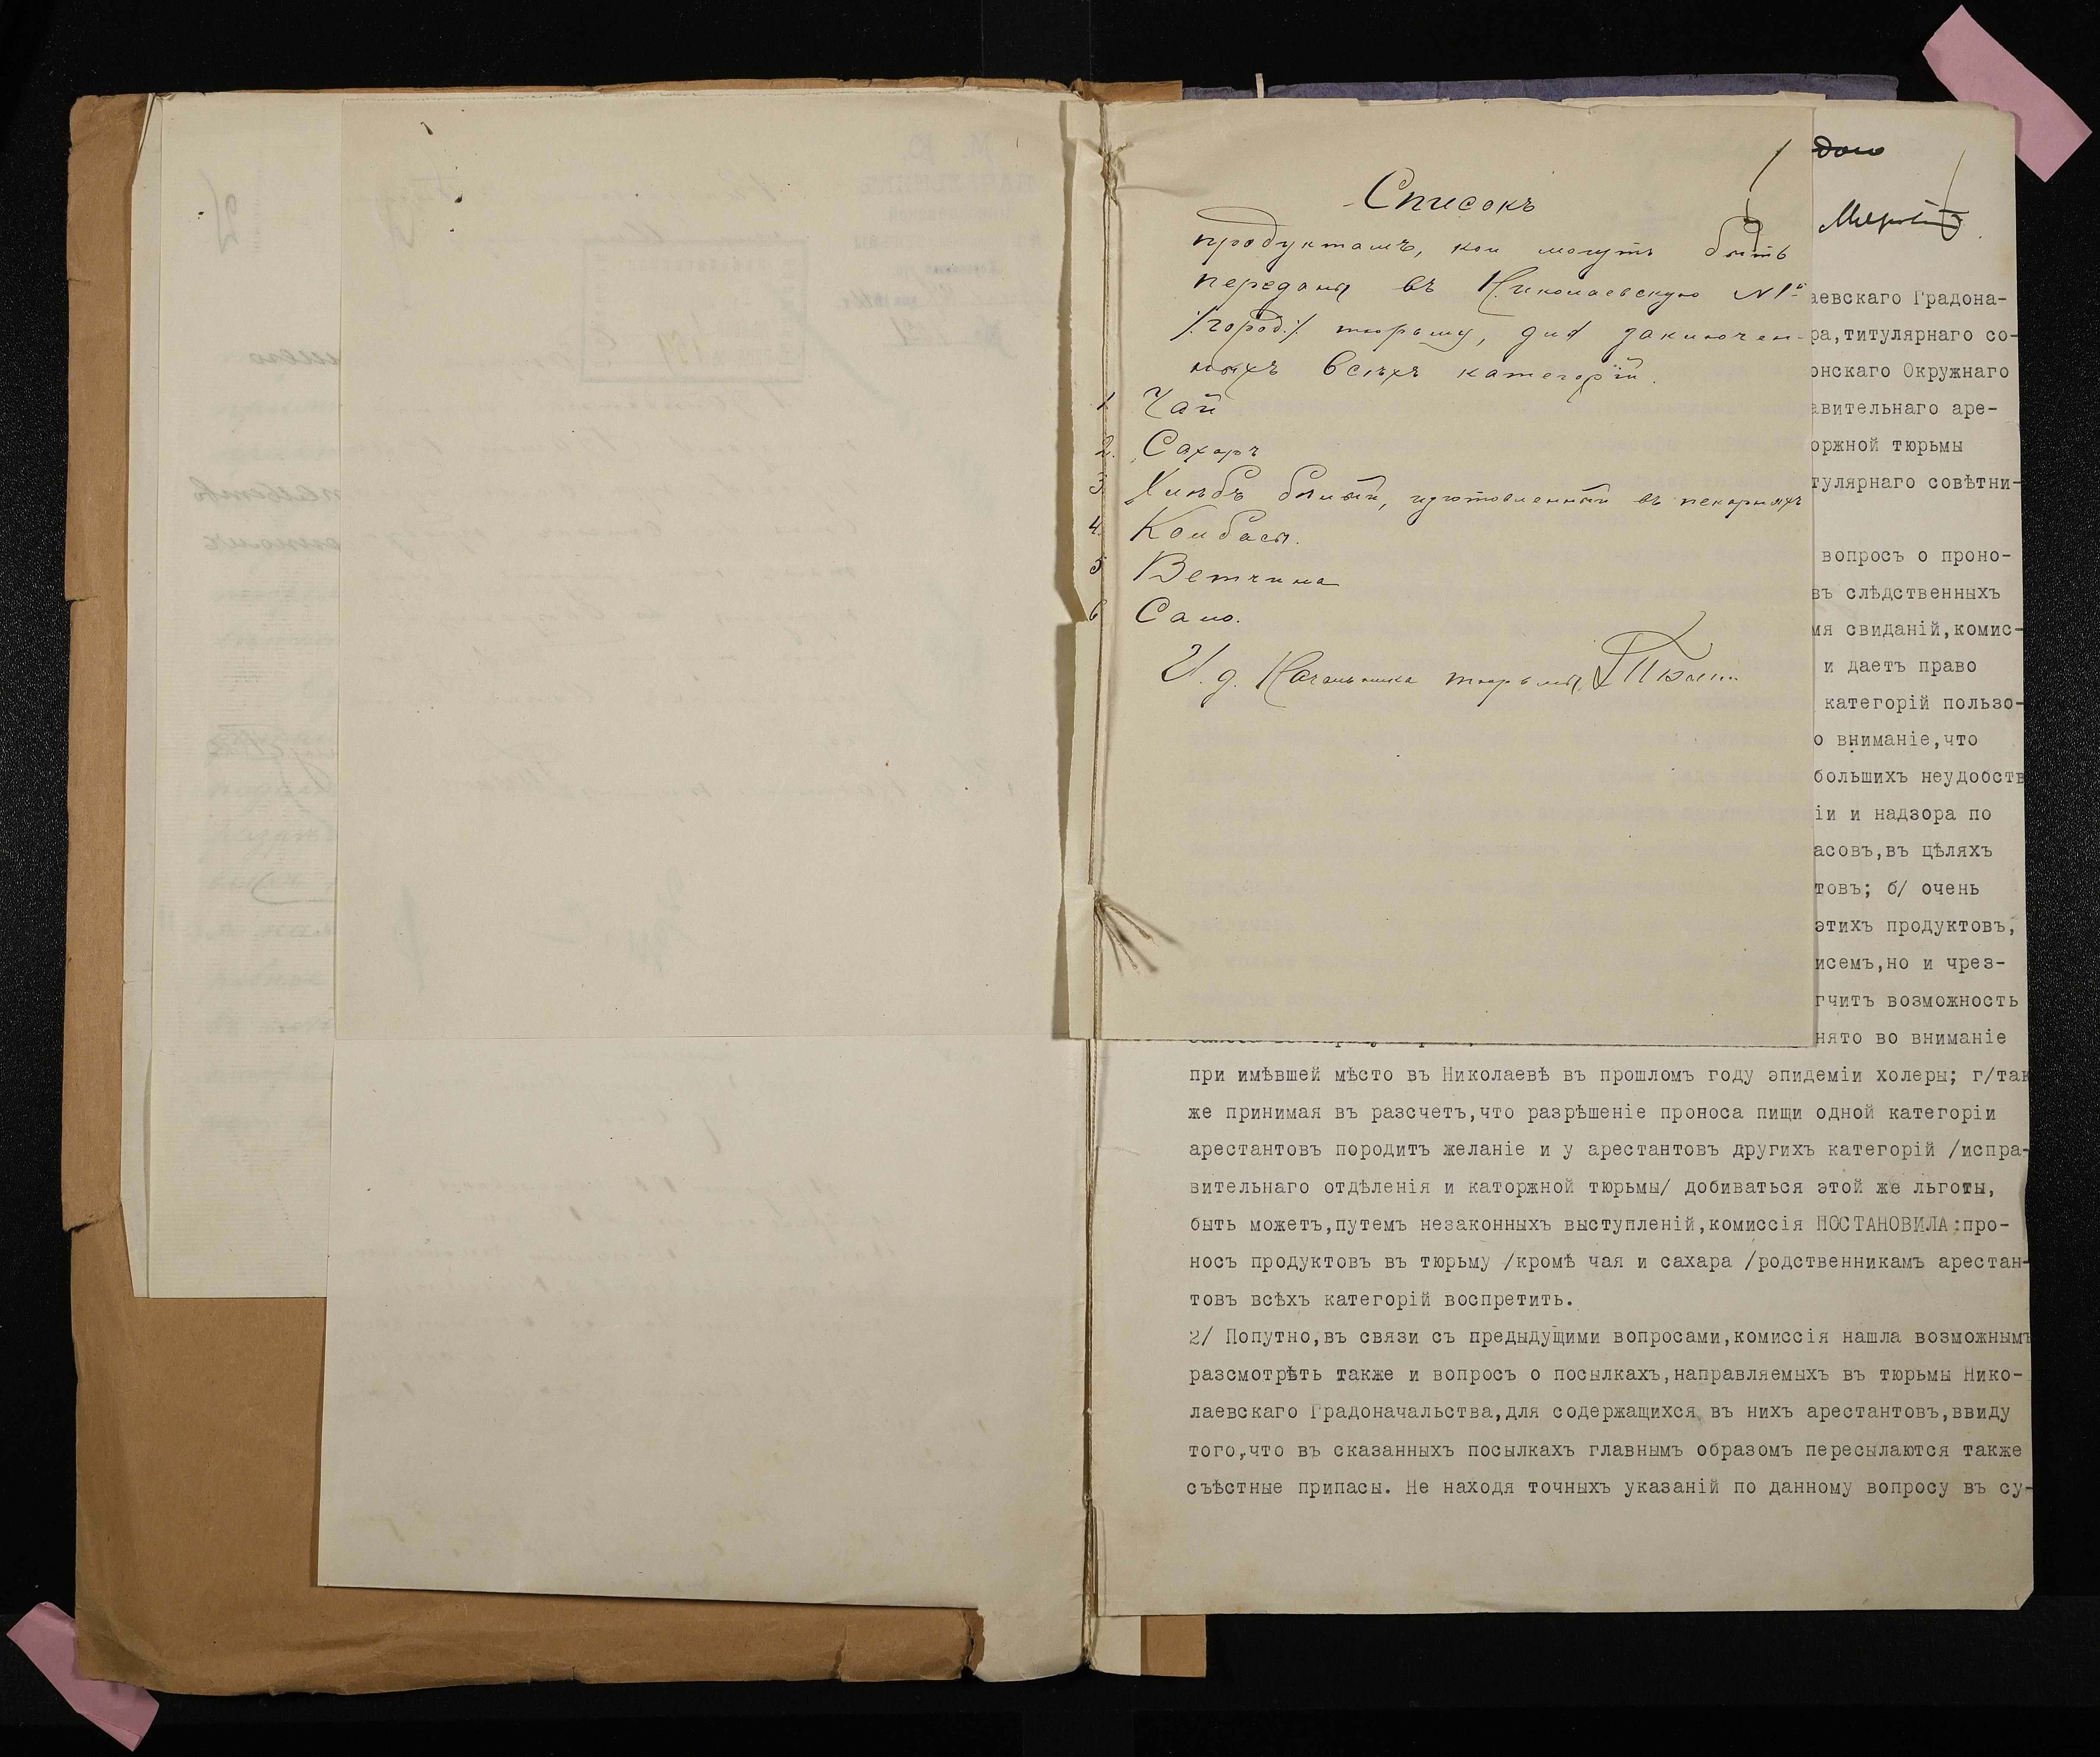 Списокъ
продуктамъ, кои могутъ быть
переданы въ Николаевскую №1й
/город./ тюрьму, для заключен-
ныхъ всѣхъ категорій.
1. Чай
2. Сахаръ
3. Хлѣбъ бѣлый, изготовленный въ пекарняхъ
4. Колбасы.
5 Ветчина
6 Сало.
И. д. Начальника тюрьмы,
аевскаго Градона-
ра,титулярнаго со-
онскаго Окружнаго
авительнаго аре-
оржной тюрьмы
тулярнаго совѣтни-
вопросъ о проно-
въ слѣдственныхъ
мя свиданій,комис-
и даетъ право
категорій пользо-
о вниманіе,что
большихъ неудобств
іи и надзора по
асовъ,въ цѣляхъ
товъ; б/ очень
этихъ продуктовъ,
исемъ,но и чрез-
гчитъ возможность
нято во вниманіе
при имѣвшей мѣсто въ Николаевѣ въ прошломъ году эпидеміи холеры; г/так
же принимая въ разсчетъ,что разрѣшеніе проноса пищи одной категоріи
арестантовъ породитъ желаніе и у арестантовъ другихъ категорій /испра-
вительнаго отдѣленія и каторжной тюрьмы/ добиваться этой же льготы,
быть можетъ,путемъ незаконныхъ выступленій,комиссія ПОСТАНОВИЛА:про-
носъ продуктовъ въ тюрьму /кромѣ чая и сахара /родственникамъ арестан-
товъ всѣхъ категорій воспретить.
2/ Попутно,въ связи съ предыдущими вопросами,комиссія нашла возможнымъ
разсмотрѣть также и вопросъ о посылкахъ,направляемыхъ въ тюрьмы Нико-
лаевскаго Градоначальства,для содержащихся въ нихъ арестантовъ,ввиду
того,что въ сказанныхъ посылкахъ главнымъ образомъ пересылаются также
съѣстные припасы. Не находя точныхъ указаній по данному вопросу въ су-